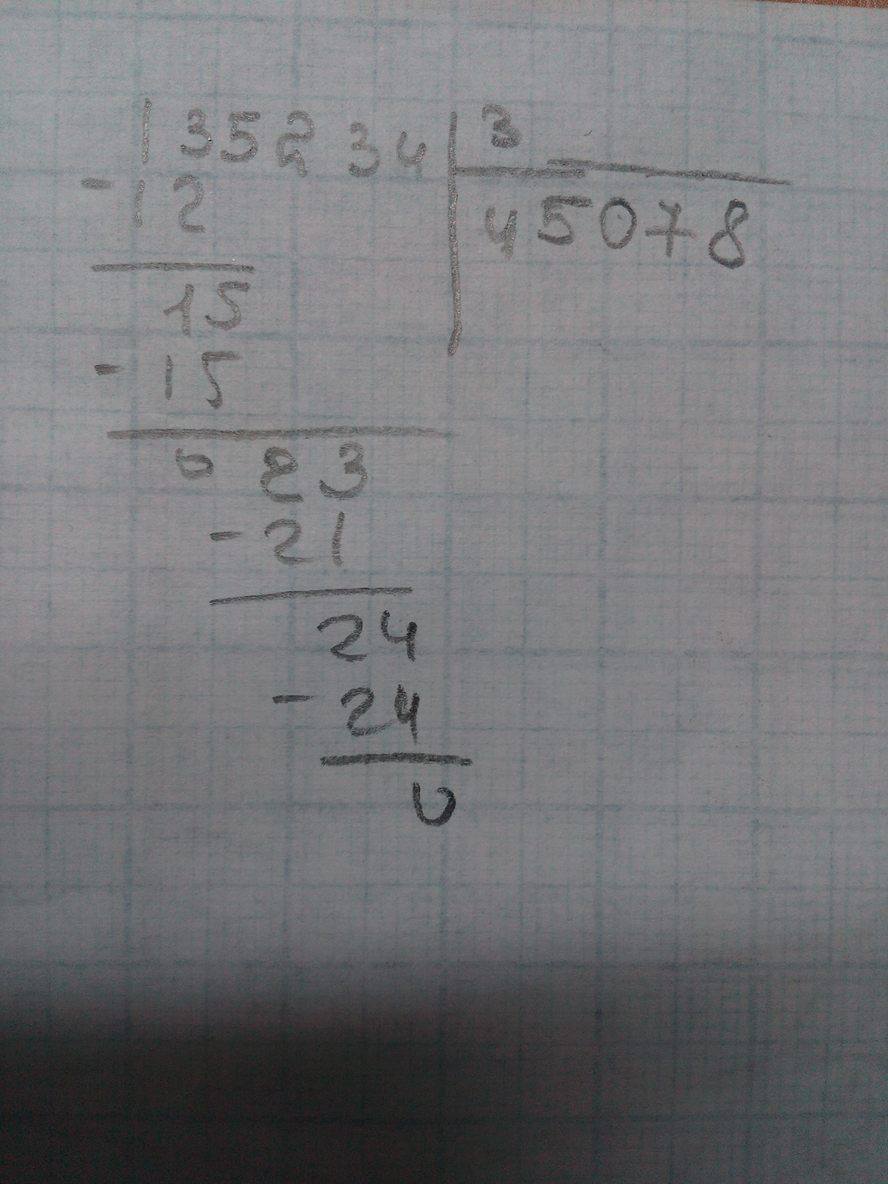 135234 3
- 12 45078
15
- 15
0 23
- 21
24
- 24
0